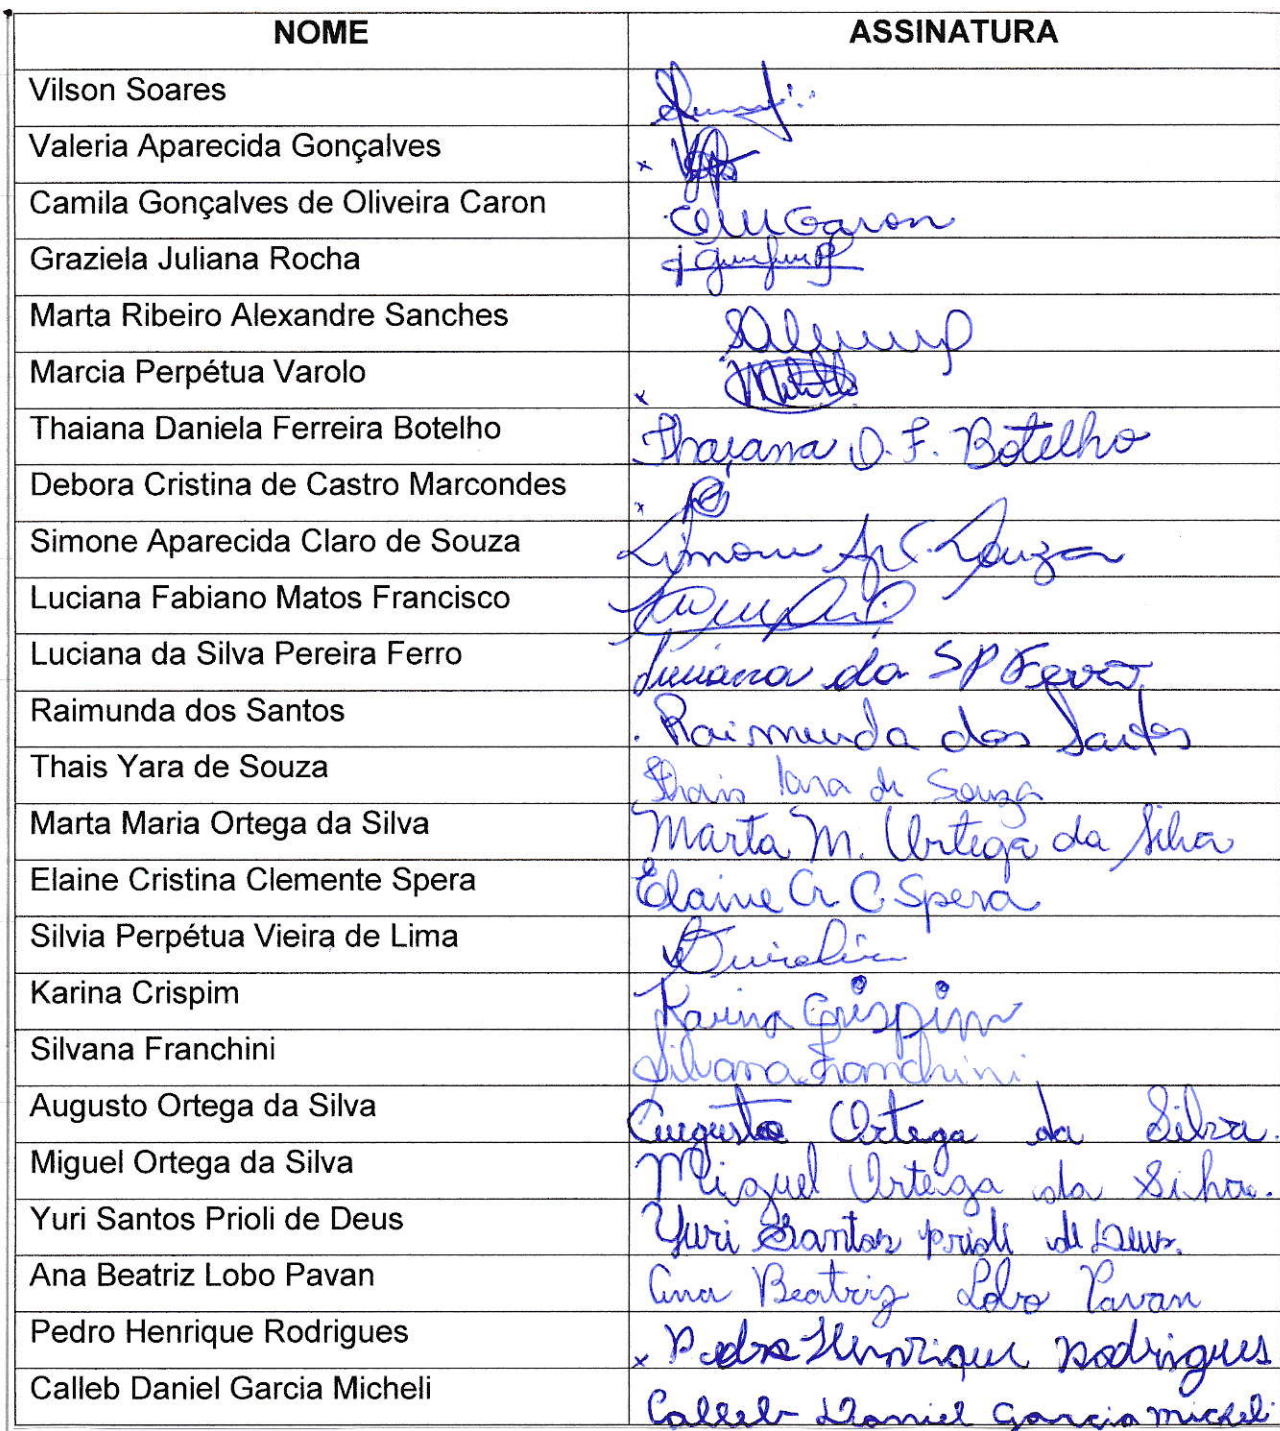 NOME ASSINATURA
Vilson Soares
Valeria Aparecida Gonçalves
Camila Gonçalves de Oliveira Caron
Graziela Juliana Rocha
Marta Ribeiro Alexandre Sanches
Marcia Perpétua Varolo
Thaiana Daniela Ferreira Botelho Thaiana D. F. Botelho
Debora Cristina de Castro Marcondes
Simone Aparecida Claro de Souza Simone Ap. C. Souza
Luciana Fabiano Matos Francisco
Luciana da Silva Pereira Ferro Luciana da SP Ferro
Raimunda dos Santos Raimunda dos Santos
Thais Yara de Souza Thais Iara de Souza
Marta Maria Ortega da Silva Marta M. Ortega da Silva
Elaine Cristina Clemente Spera Elaine Cr C. Spera
Silvia Perpétua Vieira de Lima
Karina Crispim Karina Crispim
Silvana Franchini Silvana Franchini
Augusto Ortega da Silva Augusto Ortega da Silva.
Miguel Ortega da Silva Miguel Ortega da Silva.
Yuri Santos Prioli de Deus Yuri Santos prioli de Deus.
Ana Beatriz Lobo Pavan Ana Beatriz Lobo Pavan
Pedro Henrique Rodrigues x Pedro Henrique Rodrigues
Calleb Daniel Garcia Micheli Calleb Daniel Garcia micheli